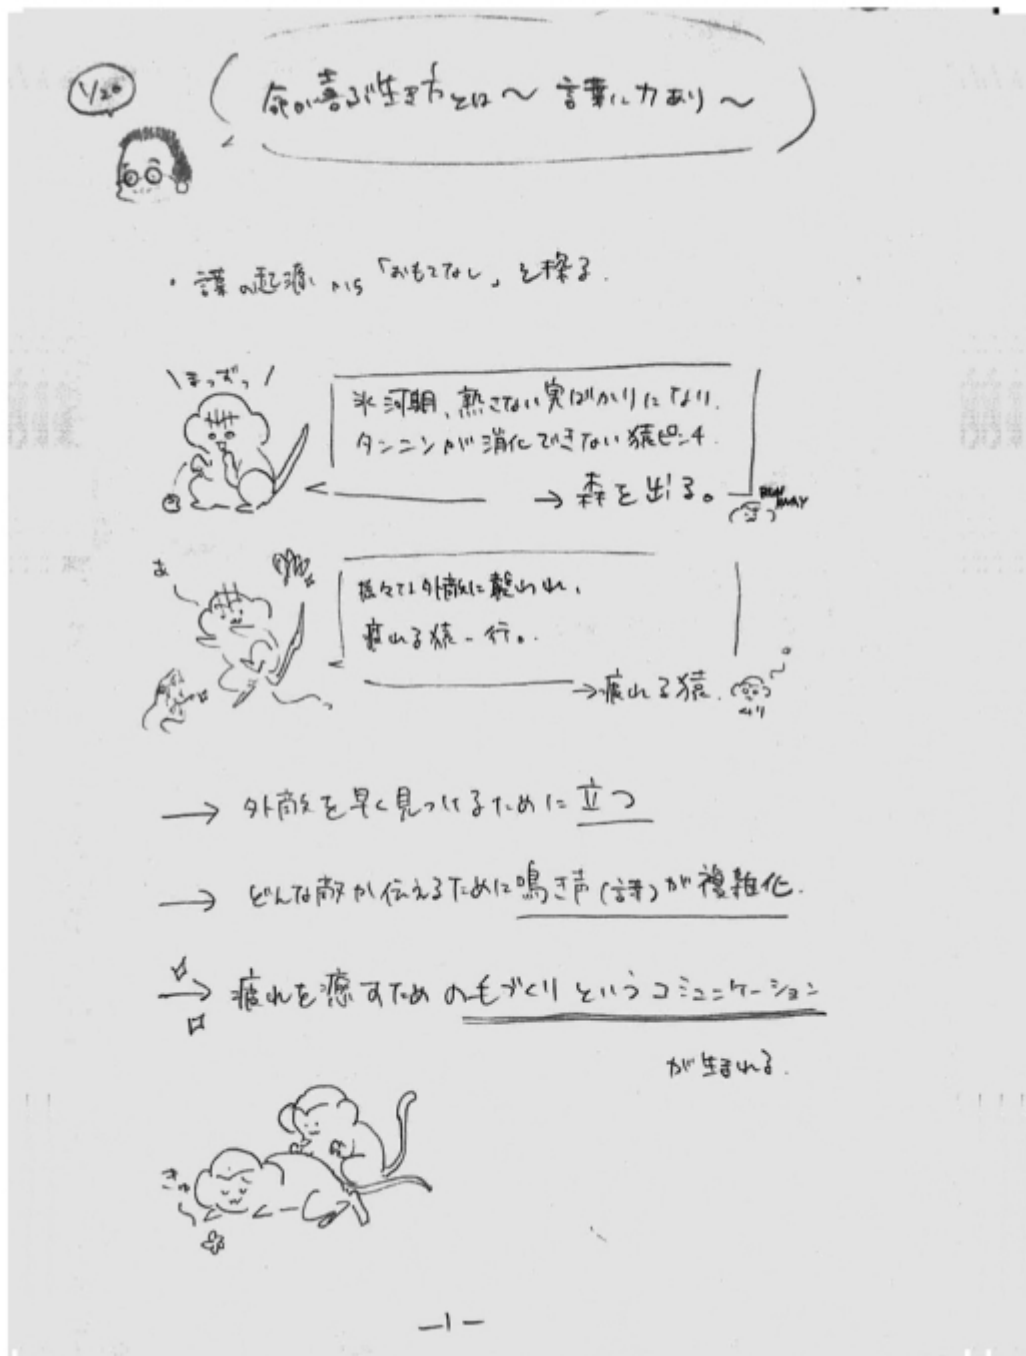 1/20
命が喜ぶ生き方とは〜 言葉に力あり〜
・言葉の起源から「おもてなし」を探る.
\まっずっ/
氷河期、熟さない実ばかりになり.
タンニンが消化できない猿ピンチ.
→ 森を出る。
RUN
AWAY
あ
様々な外敵に襲われ、
疲れる猿一行。.
→疲れる猿.
→ 外敵を早く見つけるために立つ
→ どんな敵か伝えるために鳴き声(言葉)が複雑化.
→ 疲れを癒すための毛づくりというコミュニケーション
が生まれる.
ー1ー